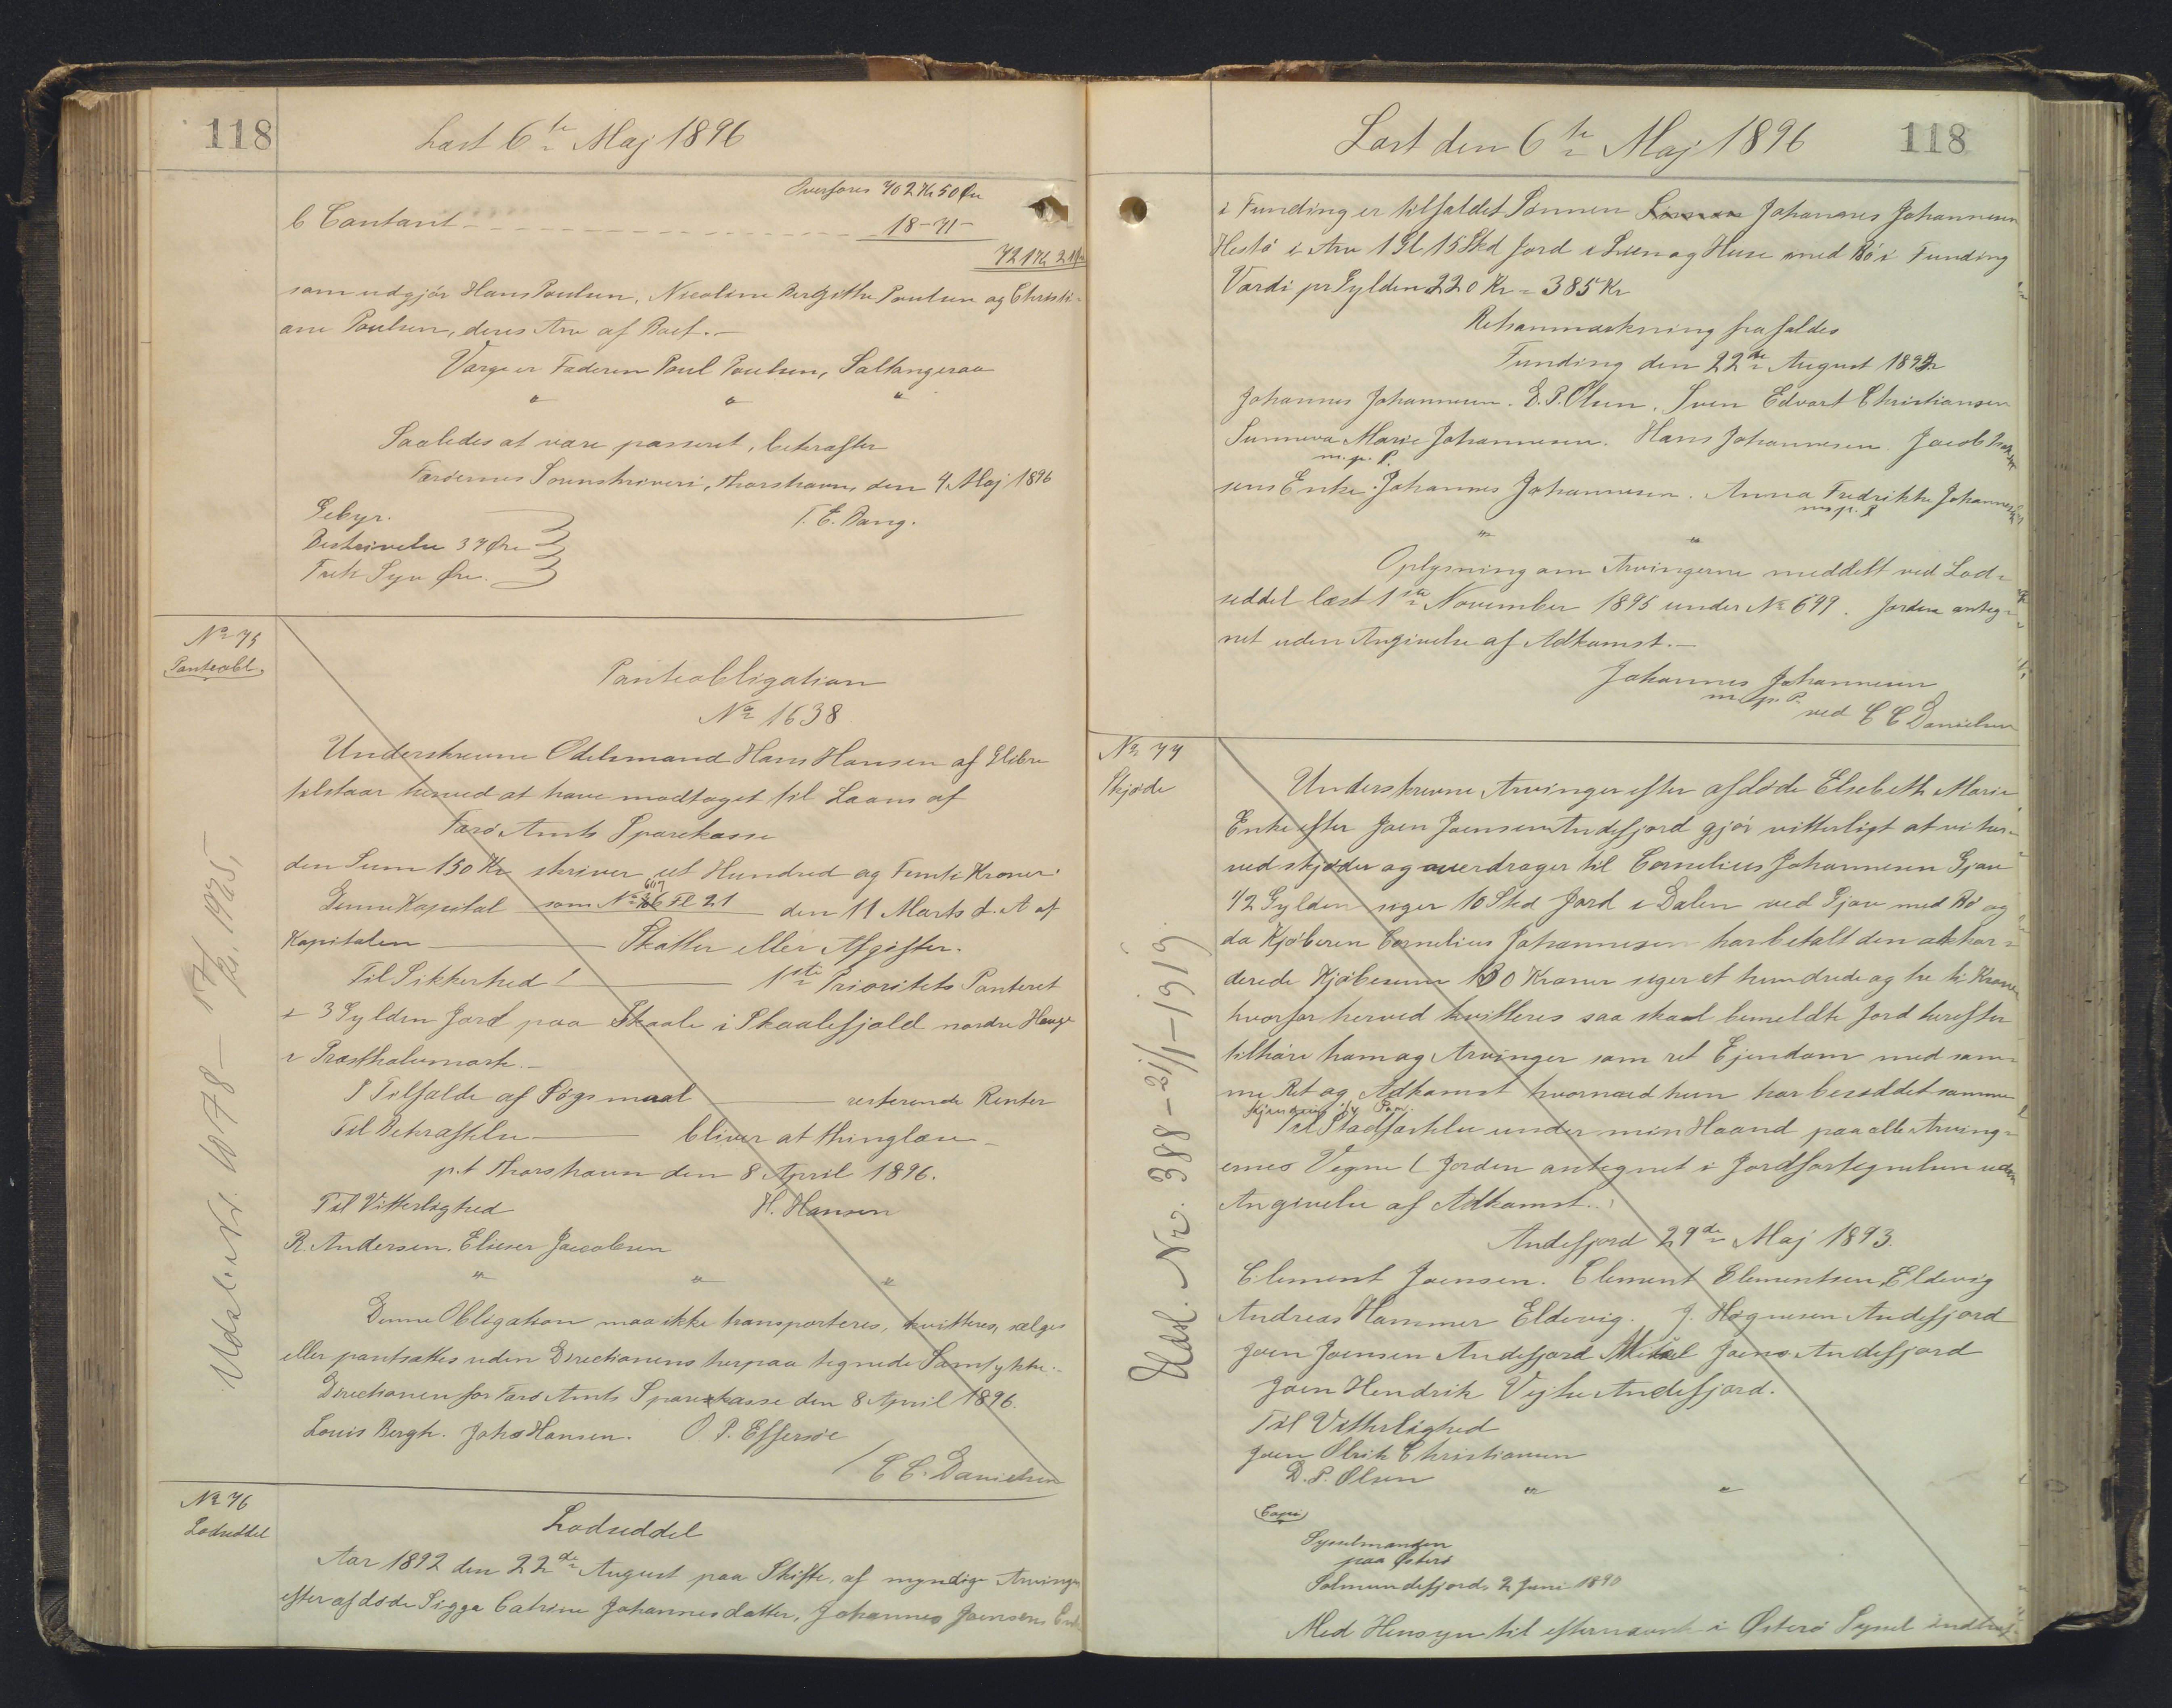 118
Læst 6te Maj 1896
Overføres 702 Kr 50 Øre
C Contant 18-71-
721 Kr 21 Øre
som udgjør Hans Poulsen, Nicoline Bergithe Poulsen og Christi-
ane Poulsen, deres Arv af Boet.-
Værge er Faderen Poul Poulsen, Saltangeraa
" " "
Saaledes at være passeret, bekræfter
Færøernes Sorenskriveri, Thorshavn, den 4 Maj 1896
T. E. Bang.
Gebyr.
Beskrivelse 37 Øre
Treti Syv Øre.
No 75
Panteobl.
Panteobligation
No 1638
Underskrevne Odelsmand Hans Hansen af Glibre
tilstaar herved at have modtaget til Laans af
Færø Amts Sparekasse
den Sum 150 Kr skriver et Hundred og Femti Kroner.
Denne Kapital som No 607 Fl 21 den 11 Marts d. A af
Kapitalen Skatter eller Afgifter.
Til Sikkerhed! 1ste Prioritets Panteret
i 3 Gylden Jord paa Skaale i Skaalefjald nordre Hauge
i Præsthalemark.-
I Tilfælde af Søgsmaal resterende Renter
Til Bekræftelse bliver at thinglæse-
p.t Thorshavn den 8 April 1896.
Til Vitterlighed H. Hansen
R. Andersen. Elieser Jacobsen
" " "
Denne Obligation maa ikke transporteres, kvitteres, sælges
eller pantsættes uden Directionens herpaa tegnede Samtykke.-
Directionen for Færø Amts Sparekasse den 8 April 1896.
Louis Bergh. Johs Hansen. O. P. Effersøe
/ C C. Danielsen
Udsl. Nr. 1078 - 17/12 1925.
No 76
Lodseddel
Lodseddel
Aar 1892 den 22de August paa Skifte, af myndige Arvinger
efter afdøde Sigga Catrine Johannesdatter, Johannes Joensens Enke
Læst den 6te Maj 1896
118
i Funding er tilfaldet Sønnen Johannes Johannesen
Hestø i Arv 1 Gl 15 Skd Jord i og Huse med Bø i Funding
Værdi pr Gylden 220 Kr = 385 Kr
Retsanmærkning frafaldes
Funding den 22de August 1892
Johannes Johannesen. D. P. Olsen. Sven Edvart Christiansen
Sunneva Marie Johannesen. Hans Johannesen. Jacob
m. p. P.
sens Enke. Johannes Johannesen. Anna Fredrikke Johannesen
m. p. P
" "
Oplysning om Arvingerne meddelt ved Lod-
seddel læst 1ste November 1895 under No 699. Jorden anteg-
net uden Angivelse af Adkomst.-
Johannes Johannesen
m. p. P.
ved C C Danielsen
No 77
Skjøde
Underskrevne Arvinger efter afdøde Elsebeth Marie
Enke efter Joen Joensen Andefjord gjør vitterligt at vi her-
ved skjøder og overdrager til Cornelius Johannesen Gjov
1/2 Gylden siger 10 Skd Jord i Dalen ved Gjov med Bø og
da Kjøberen Cornelius Johannesen har betalt den akkor-
derede Kjøbesum 130 Kroner siger et hundrede og tre ti Kroner
hvorfor herved kvitteres saa skal bemeldte Jord herefter
tilhøre ham og Arvinger som ret Ejendom med sam-
me Ret og Adkomst hvormed hun har besiddet samme
Til Stadfæstelse under min Haand paa alle Arving-
ernes Vegne (Jorden antegnet i Jordfortegnelsen uden
Angivelse af Adkomst.)
Andefjord 29de Maj 1893
Clement Joensen. Clement Clementsen Eldevig
Andreas Hammer Eldevig. J. Høgnesen Andefjord
Joen Joensen Andefjord Mikal Joens Andefjord
Joen Hendrik Vejhe Andefjord.
Til Vitterlighed
Joen Olrik Christiansen
D. P. Olsen
" "
(Copi)
Sysselmanden
paa Østerø
Solmundefjord, 2 Juni 1890
Med Hensyn til efternævnte i Østerø Syssel
Udsl. Nr. 388 - 21/1-1919.